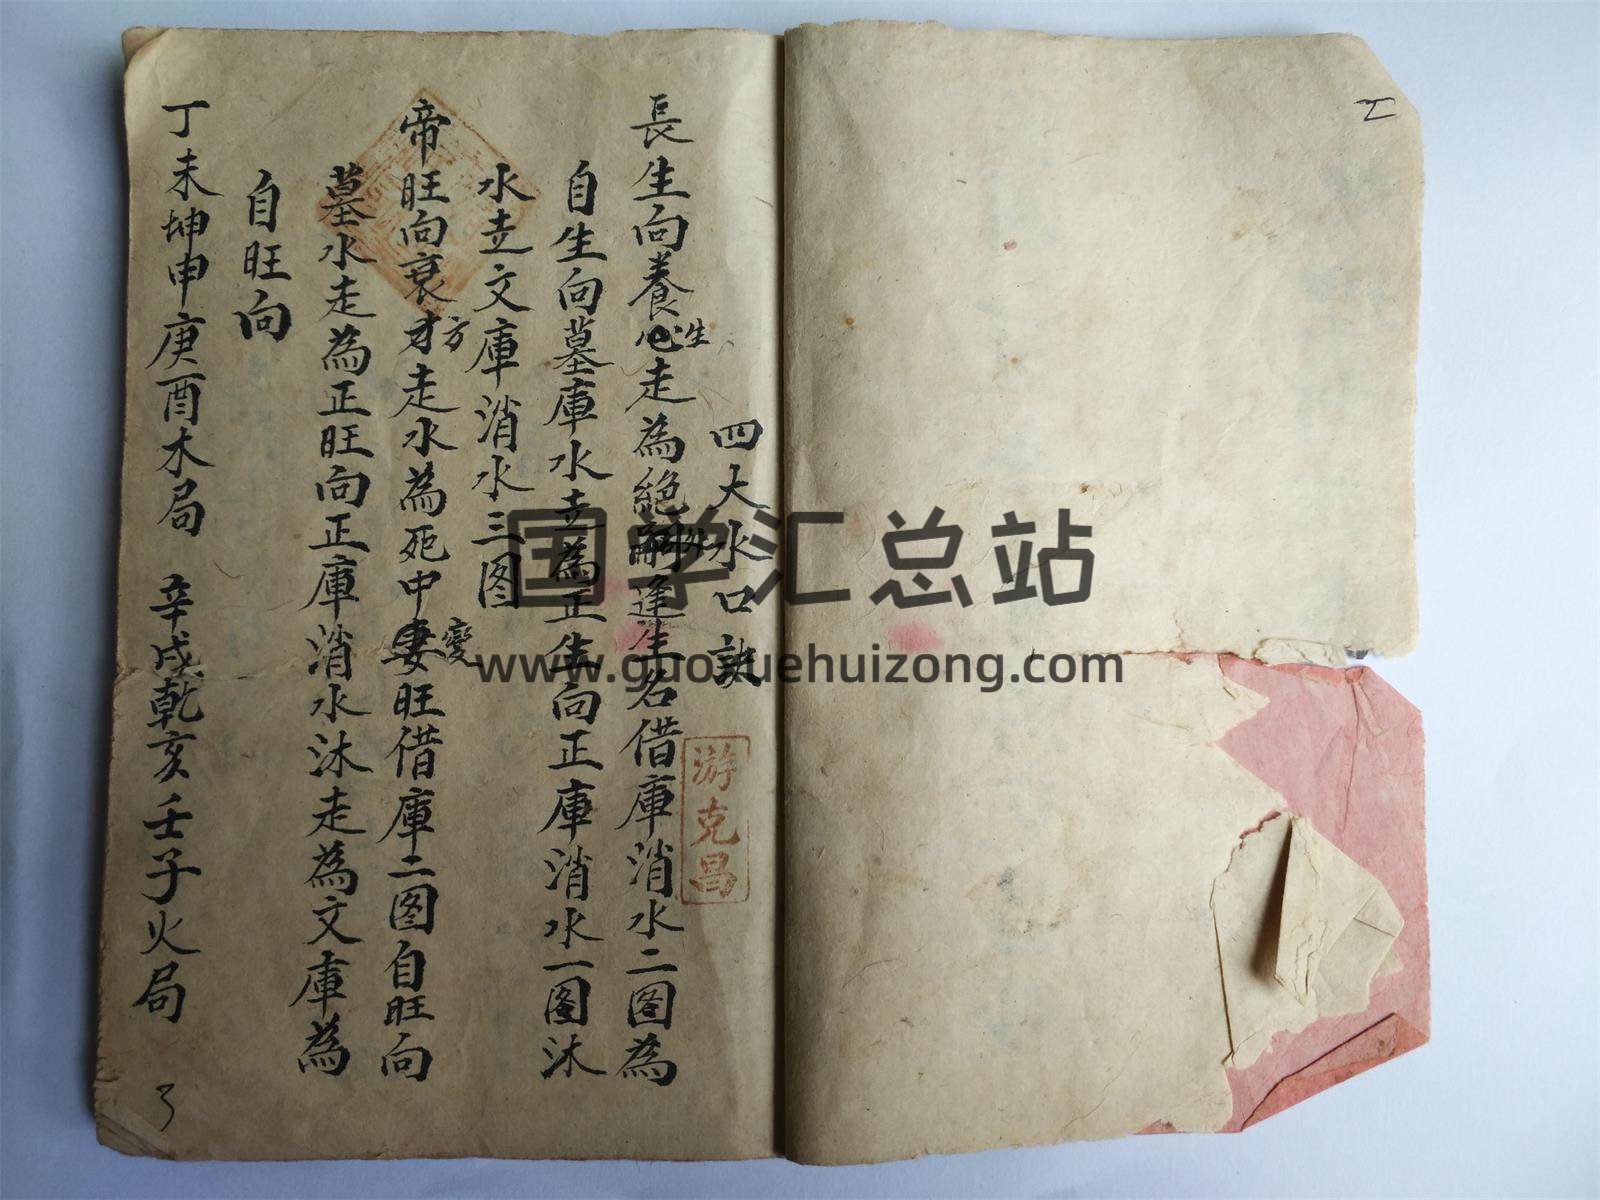 四大水口訣
游克昌
長生向養生走為絶處逢生名借庫消水二图為
自生向墓庫水走為正生向正庫消水一图沐
水走文庫消水三图
帝旺向衰方走水為死中變旺借庫二图自旺向
墓水走為正旺向正庫消水沐走為文庫為
自旺向
丁未坤申庚酉木局 辛戌乾亥壬子火局
3
国学汇总站
www.guoxuehuizong.com